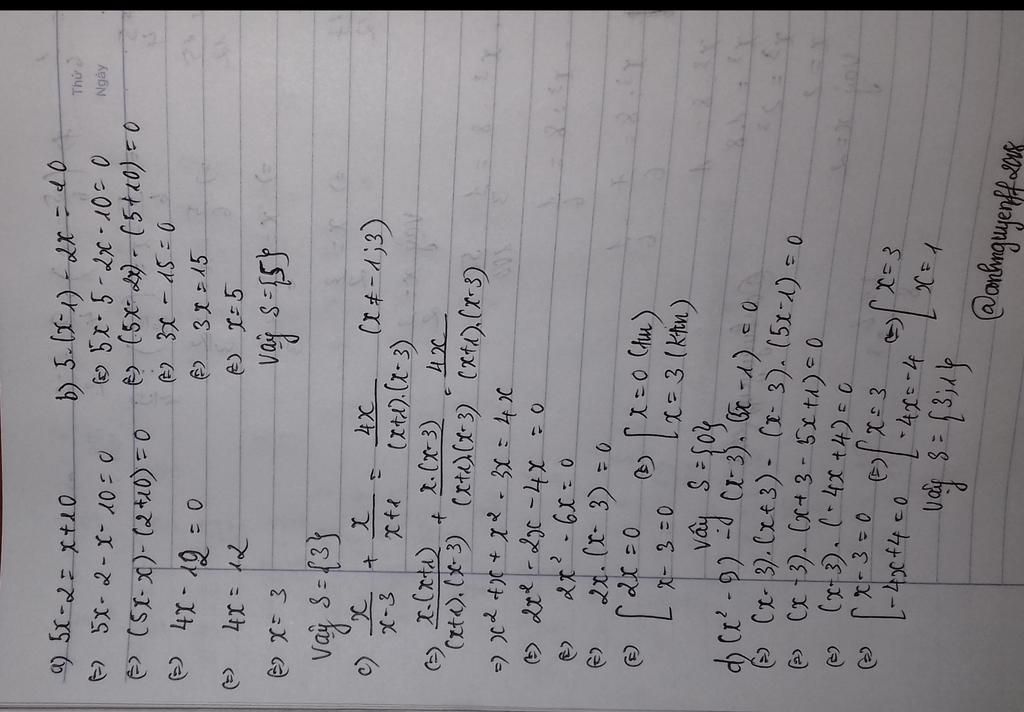 Thứ
Ngày
a) 5x-2 = x+10
(=) 5x-2-x-10=0
(=) (5x-x)-(2+10)=0
(=) 4x-12=0
(=) 4x=12
(=) x=3
Vậy S={3}
b) 5.(x-1)-2x=10
(=) 5x-5-2x-10=0
(=) (5x-2x)-(5+10)=0
(=) 3x-15=0
(=) 3x=15
(=) x=5
Vậy S={5}
c) x/(x-3) + x/(x+1) = 4x/((x+1).(x-3)) (x≠-1;3)
(=) x.(x+1)/((x+1).(x-3)) + x.(x-3)/((x+1)(x-3)) = 4x/((x+1).(x-3))
=) x²+x+x²-3x=4x
(=) 2x²-2x-4x=0
(=) 2x²-6x=0
(=) 2x.(x-3)=0
(=) [2x=0 (=) [x=0 (tm)
x-3=0 x=3 (ktm)
Vậy S={0}
d) (x²-9)-(x-3).(5x-1)=0
(=) (x-3).(x+3)-(x-3).(5x-1)=0
(=) (x-3).(x+3-5x+1)=0
(=) (x-3).(-4x+4)=0
(=) [x-3=0 (=) [x=3 (=) [x=3
-4x+4=0 -4x=-4 x=1
Vậy S={3;1}